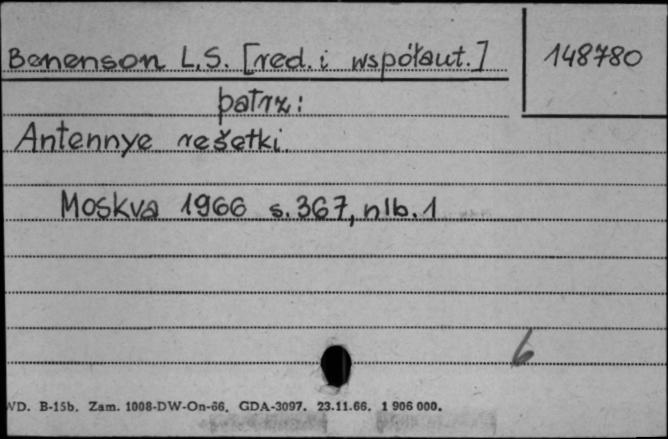 Benenson L.S. [red. i współaut.] 148780
patrz:
Antennye rešetki.
Moskva 1966 s. 367, nlb. 1
6
WD. B-15b. Zam. 1008-DW-On-66. GDA-3097. 23.11.66. 1 906 000.